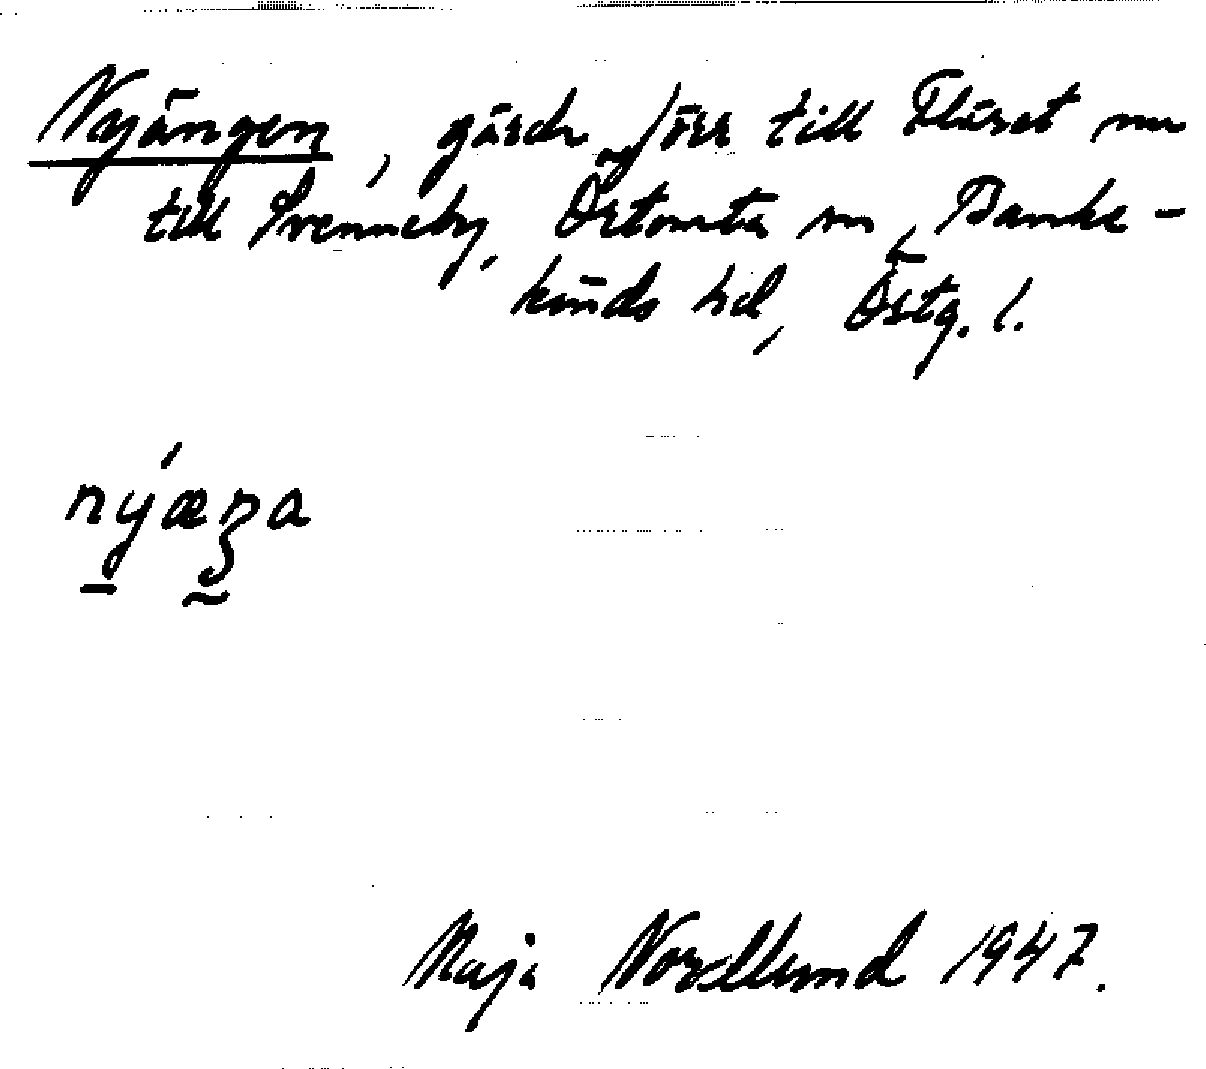 Nyängen, gärde förr till Fläret nu
till Svenneby, Östomta sn, Banke-
kinds hd, Östg. l.
nýæŋa
Maja Nordlund 1947.